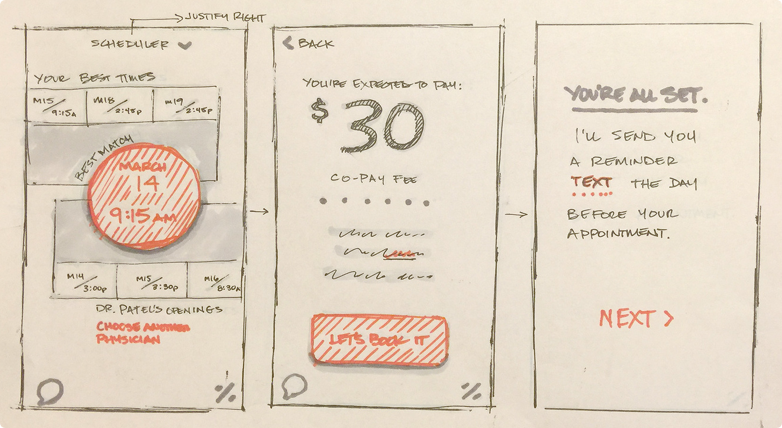 JUSTIFY RIGHT
SCHEDULER
YOUR BEST TIMES
M15/9:15A M18/2:45P M19/2:45P
BEST MATCH
MARCH
14
9:15 AM
M14/3:00P M15/3:30P M16/8:30A
DR. PATEL'S OPENINGS
CHOOSE ANOTHER
PHYSICIAN
%
< BACK
YOU'RE EXPECTED TO PAY:
$30
CO-PAY FEE
LET'S BOOK IT
%
YOU'RE ALL SET.
I'LL SEND YOU
A REMINDER
TEXT THE DAY
BEFORE YOUR
APPOINTMENT.
NEXT >